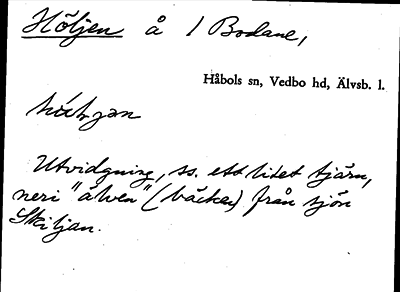 Höljen å / Bodane,
Håbols sn, Vedbo hd, Älvsb. l.
Utvidgning, ss. ett litet tjärn,
neri "älven" (bäcken) från sjön
Skiljan.